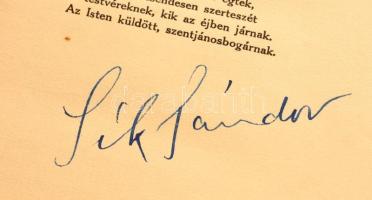 égtek,
csendesen szerteszét
testvéreknek, kik az éjben járnak.
Az Isten küldött, szentjánosbogárnak.
Sík Sándor